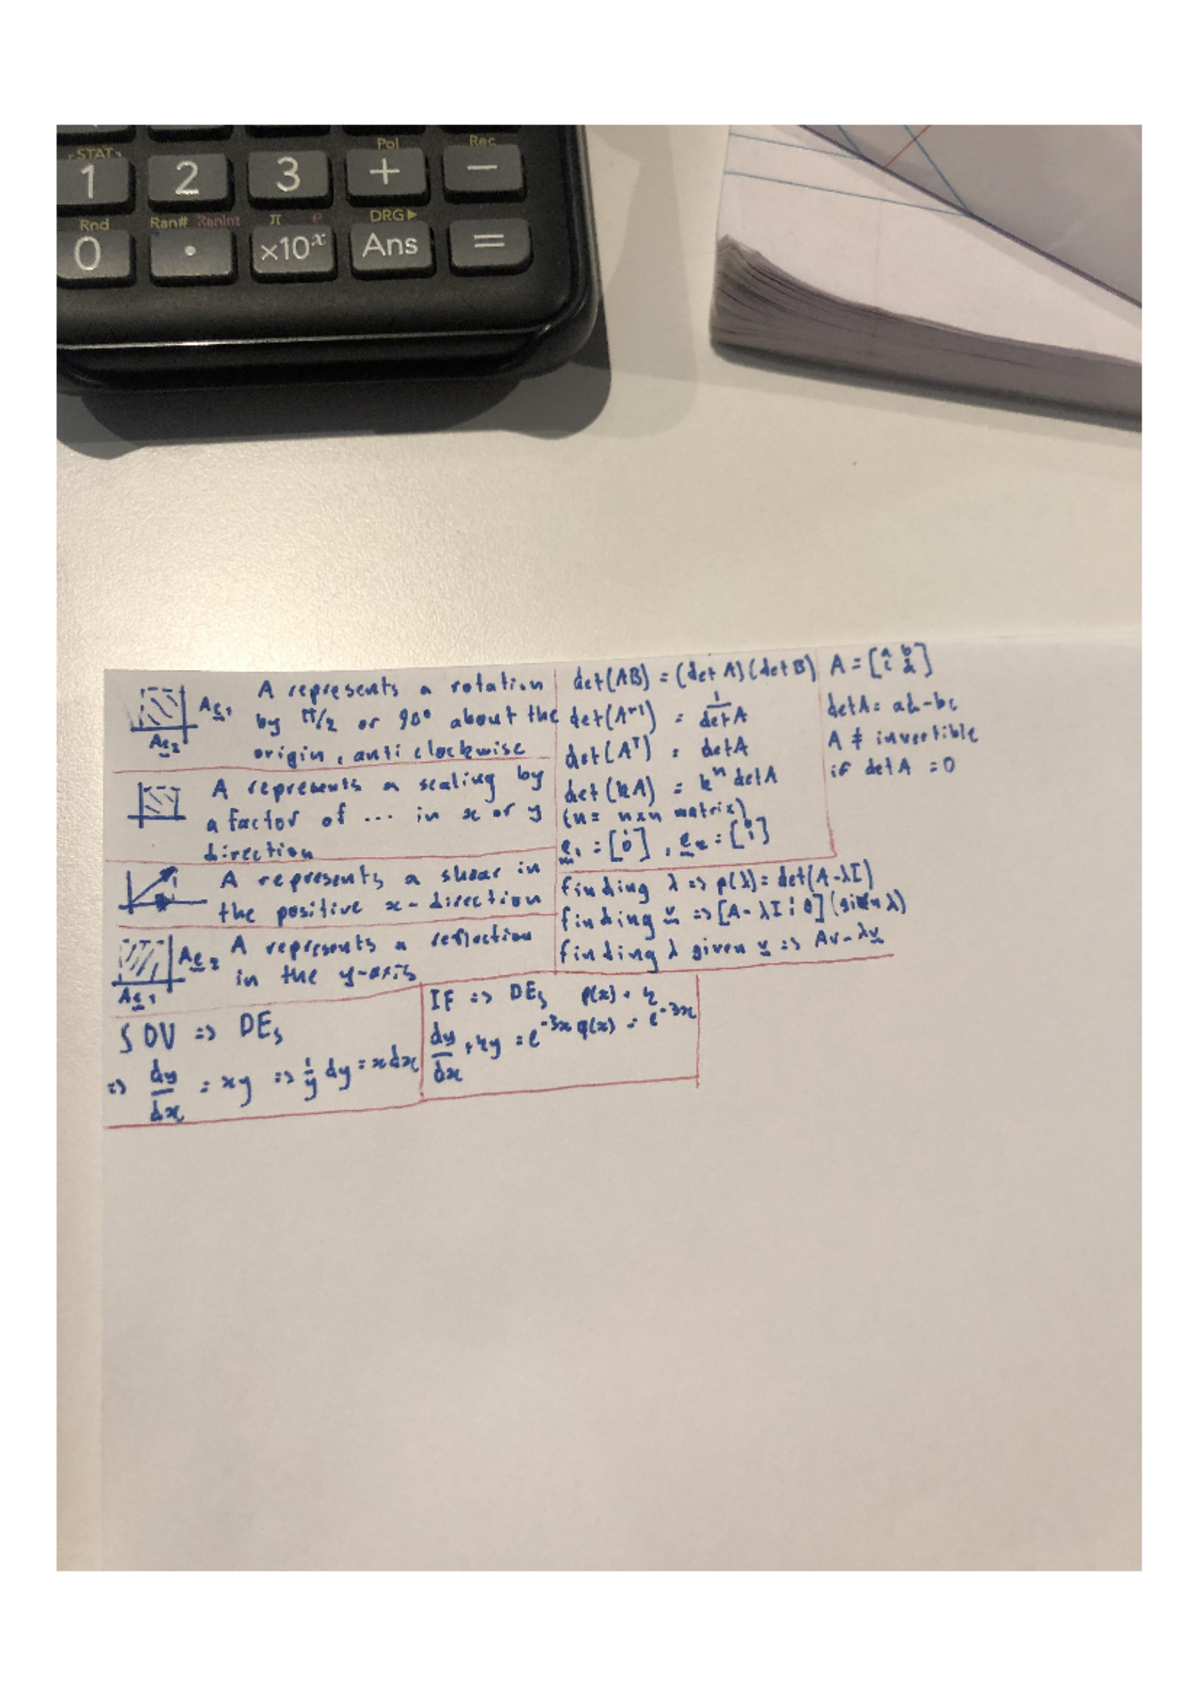 STAT
Pol
Rec
1 2 3 + −
Rnd Ran# RanInt π e DRG▶
0 · ×10ˣ Ans =
Ae₁
Ae₂
A represents a rotation
by π/2 or 90° about the
origin, anti clockwise
A represents a scaling by
a factor of ... in x or y
direction
A represents a shear in
the positive x-direction
Ae₂
Ae₁
A represents a reflection
in the y-axis
SOV => DEs
=> dy/dx = xy => 1/y dy = x dx
det(AB) = (det A)(det B)
det(A⁻¹) = 1/det A
det(Aᵀ) = det A
det(kA) = kⁿ det A
(n = nxn matrix)
e₁ = [1 0], e₂ = [0 1]
A = [a b c d]
det A = ad - bc
A ≠ invertible
if det A = 0
finding λ => p(λ) = det(A-λI)
finding v => [A-λI ¦ 0] (given λ)
finding λ given v => Av - λv
IF => DEs p(x) = 4
dy/dx + 4y = e⁻³ˣ q(x) = e⁻³ˣ